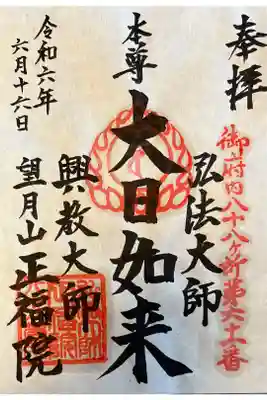 奉拝
御府内八十八ヶ所第六十一番
弘法大師
本尊
大日如来
興教大師
令和六年
六月十六日
望月山 正福院